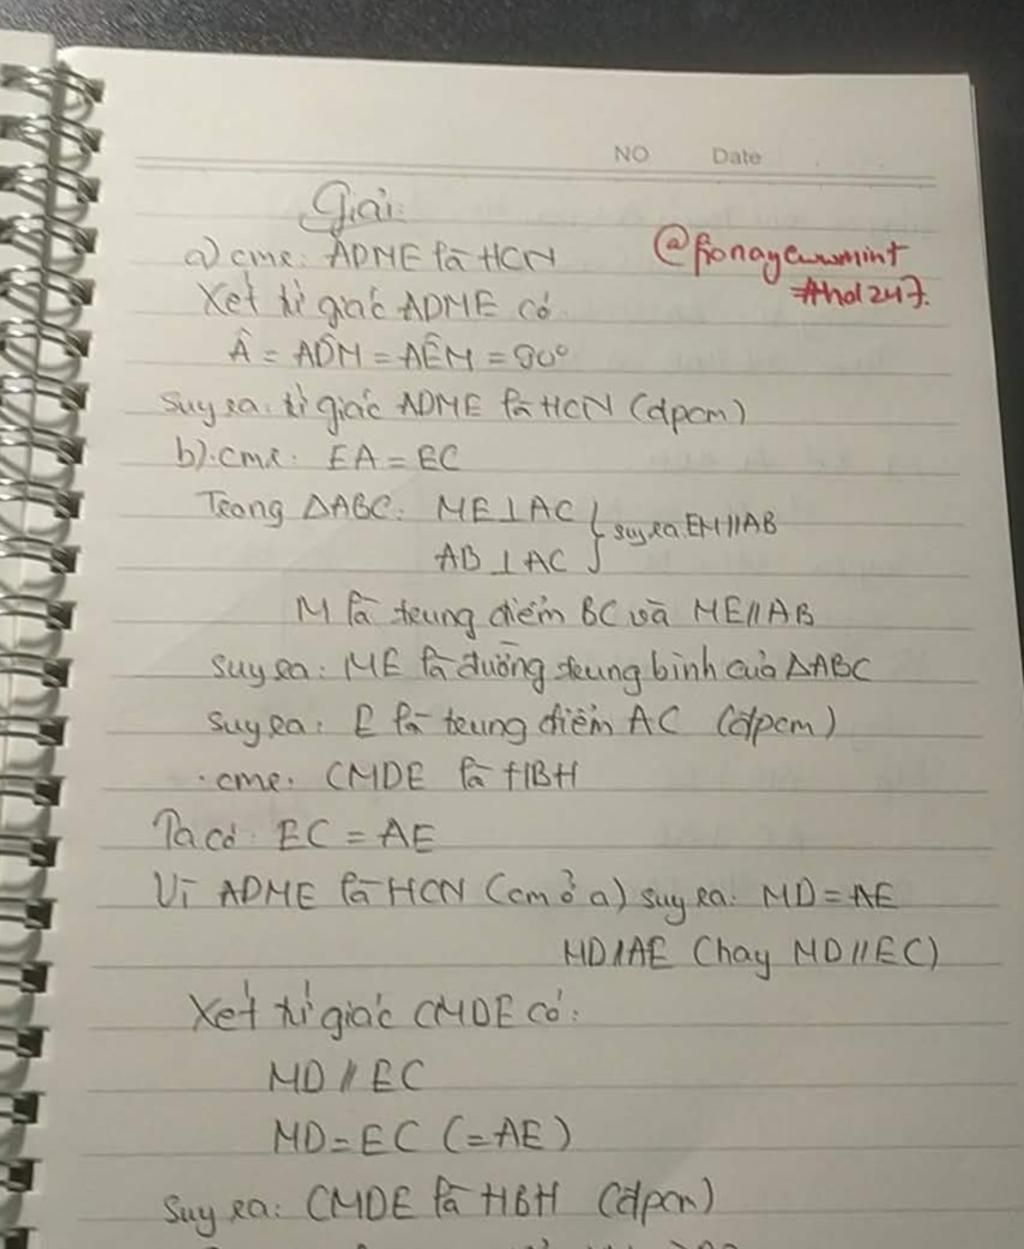 NO Date
Giải:
a) cmr: ADME là HCN
@fionayewwmint
#hd247.
Xét tứ giác ADME có
Â = AD̂M = AÊM = 90°
Suy ra: tứ giác ADME là HCN (đpcm)
b) . cmr: EA = EC
Trong ΔABC: ME⊥AC
AB ⊥ AC } suy ra EM//AB
M là trung điểm BC và ME//AB
Suy ra: ME là đường trung bình của ΔABC
Suy ra: E là trung điểm AC (đpcm)
. cmr. CMDE là HBH
Ta có: EC = AE
Vì ADME là HCN (cm ở a) suy ra: MD = AE
MD//AE (hay MD//EC)
Xét tứ giác CMDE có:
MD // EC
MD = EC (=AE)
Suy ra: CMDE là HBH (đpcm)